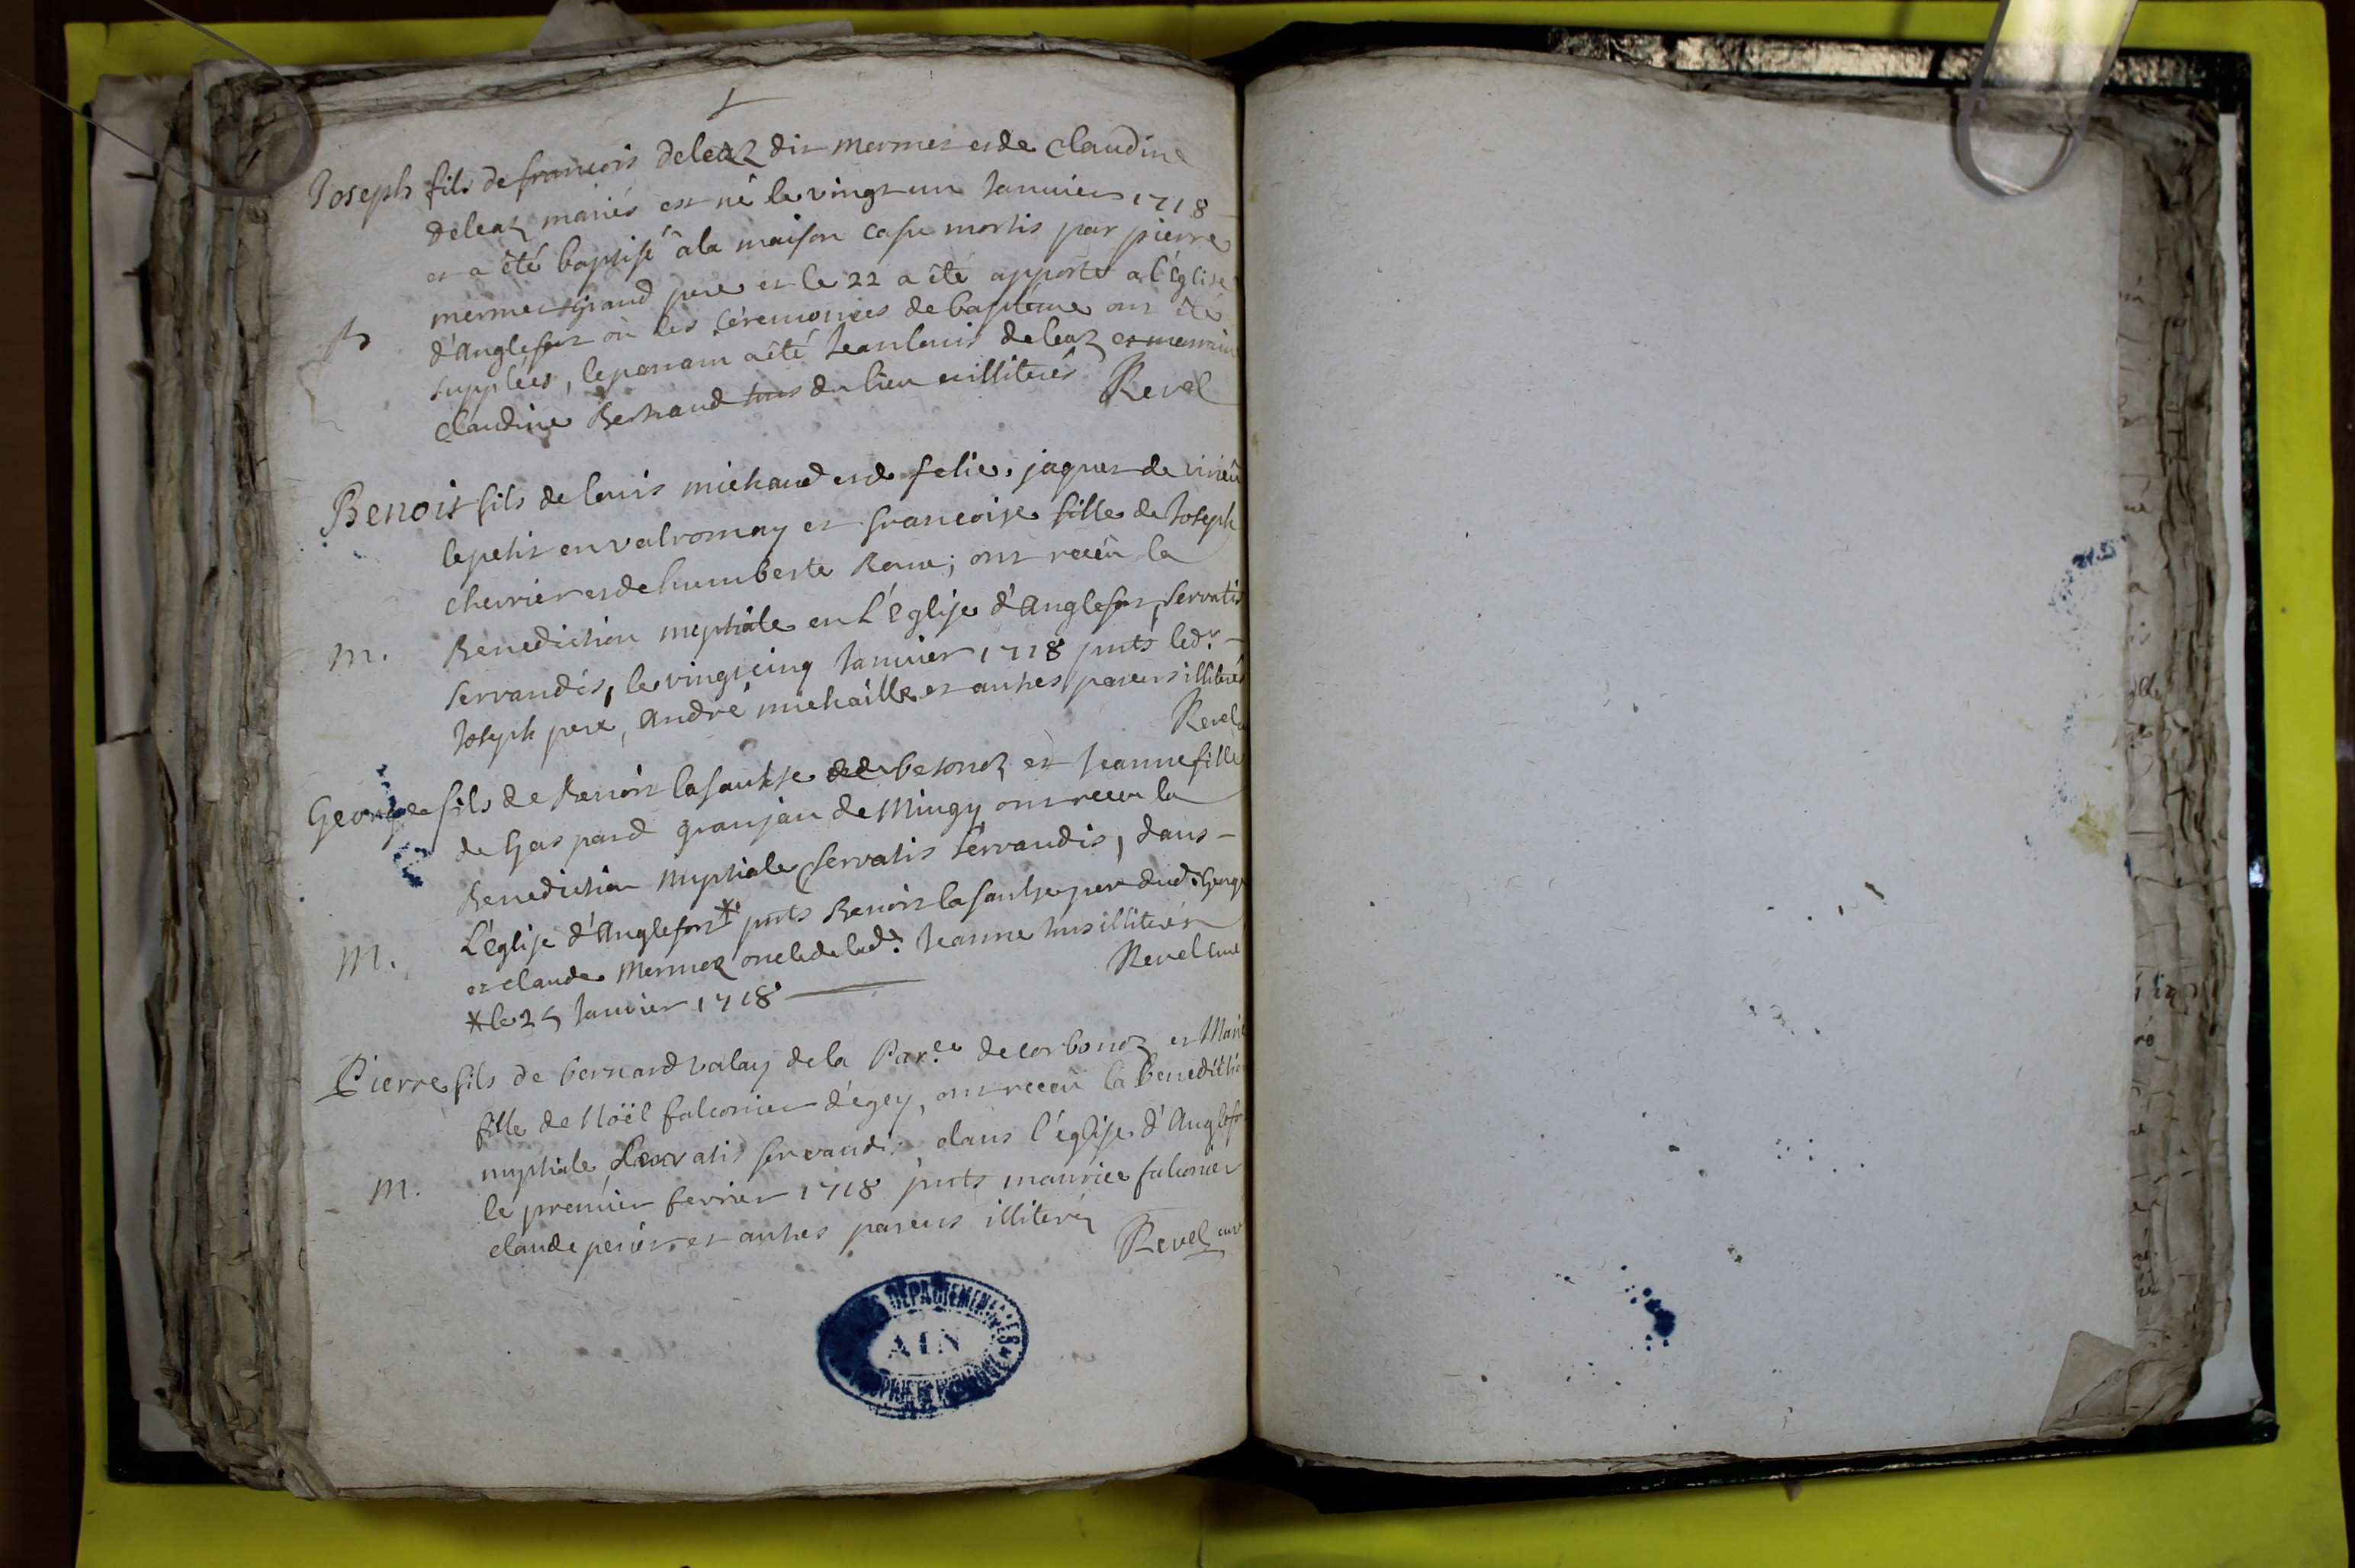 Joseph fils de francois deleaz dit mermet et de Claudine
deleaz mariés est né le vingt un Janvier 1718
et a été baptisé à la maison casu mortis par pierre
mermet grand pere et le 22 a été apporté a l'Eglise
B d'Anglefort où les Céremonies de baptême ont été
supplées, le parrain a été Jean louis deleaz et marraine
Claudine Bertrand tous du lieu et illiterés Revel
Benoit fils de louis michaud et de felie jaques de virieu
le petit en valromay et francoise fille de Joseph
chevrier et de humberte Roux; ont receu la
m. Benediction nuptiale en L'Eglise d'Anglefort, servatis
servandis, le vingt cinq Janvier 1718 pnts led.
Joseph pere, André michaille et autres parens illiterés
Revel
George fils de Benoit lasausse de besonoz et Jeanne fille
de Gaspard granjan de Mingy ont receu la
Benediction nuptiale servatis servandis, dans
L'église d'Anglefort * pnts Benoit lasausse pere dud. George
M. et claude Mermez oncle de lad. Jeanne tous illiterés
* le 25 Janvier 1718 Revel curé
Pierre fils de bernard valay de la Par.ce de corbonoz et Marie
fille de Noël falconier d'égey, ont receu la benediction
nuptiale Servatis servandis dans l'église d'Anglefort
m. le premier fevrier 1718 pnts maurice falconier
claude perier et autres parens illiteréz
Revel curé
DEPARTEMENTALES
AIN